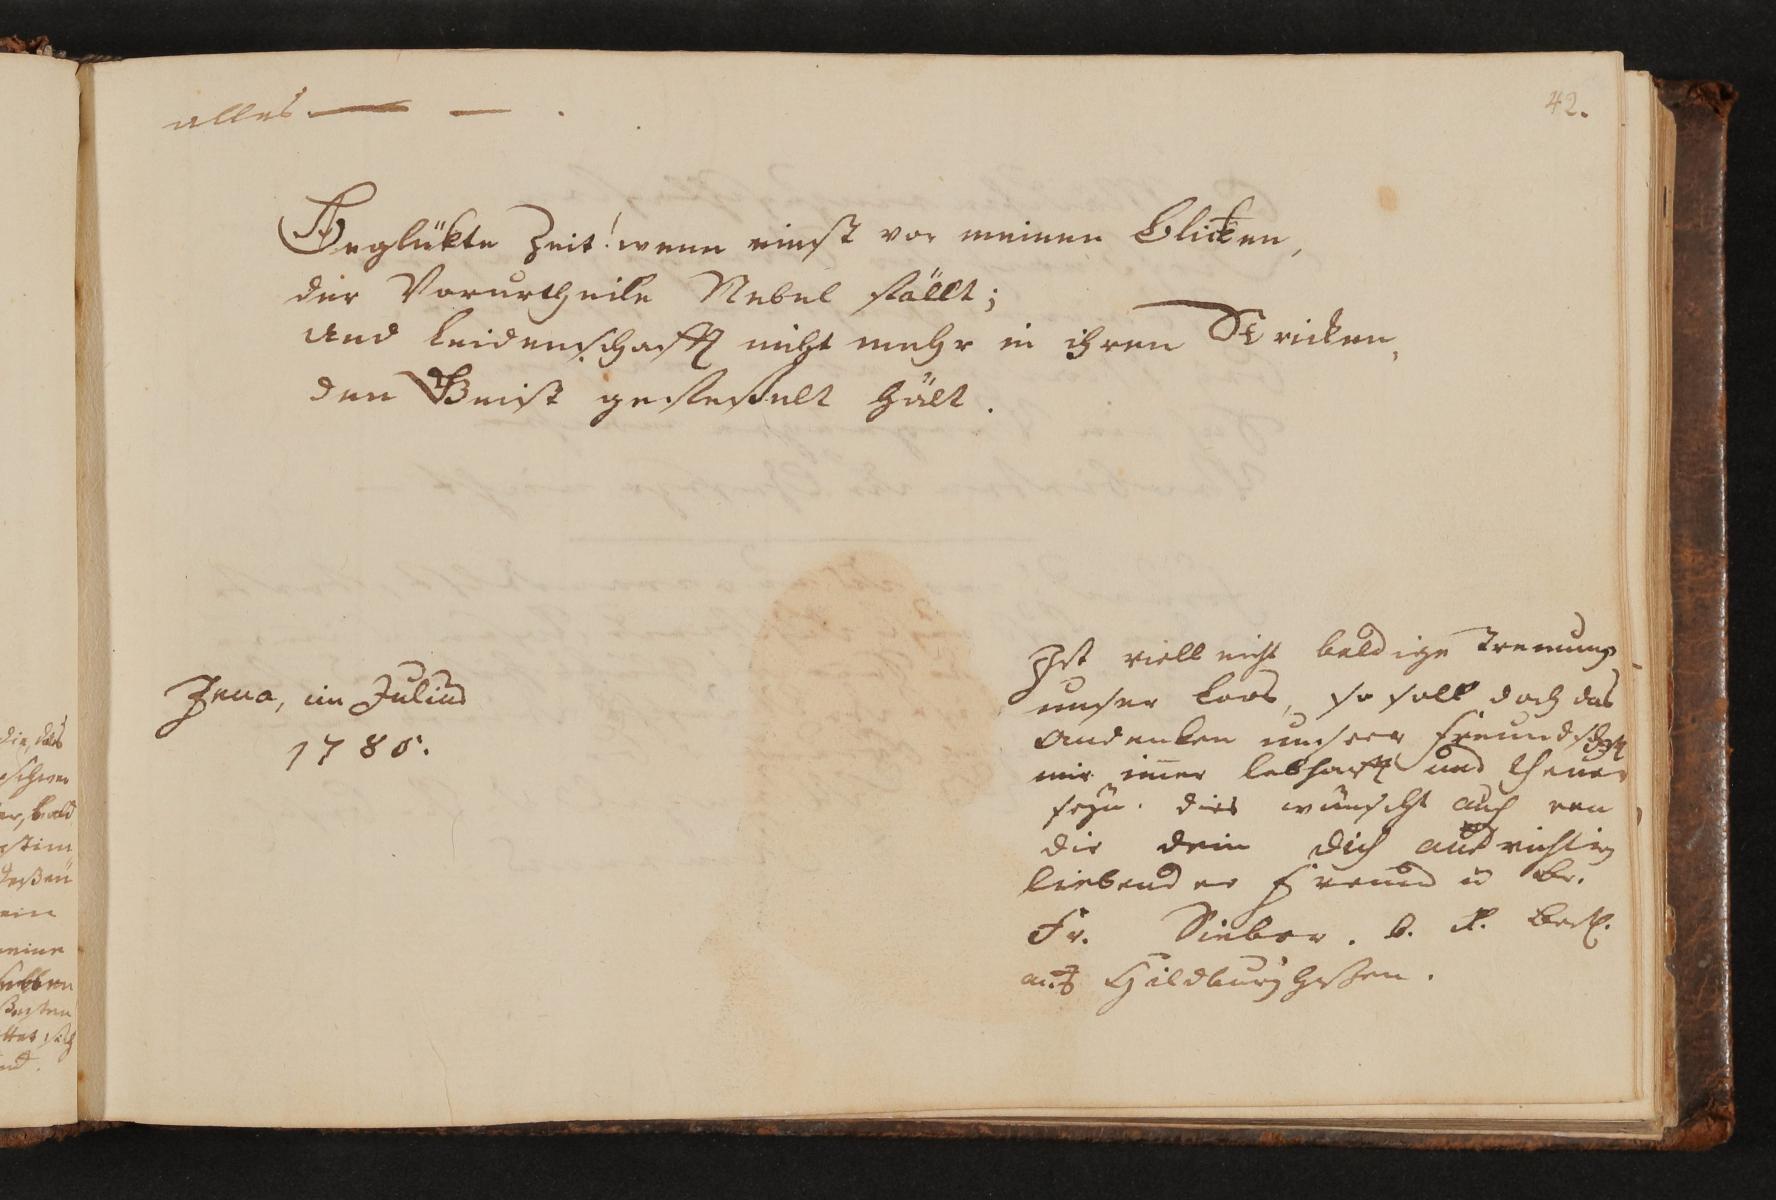 alles — — .
42.
Beglükte Zeit! wenn einst vor meinen Blicken,
der Vorurtheile Nebel fällt;
und Leidenschafft nicht mehr in ihren Stricken,
den Geist gefeßelt hält.
Jena, im Julius
1780.
Ist vielleicht baldige Trennung
unser Loos, so soll doch das
Andenken unserer Freundschafft
mir im̅er lebhafft und theuer
seyn. dies wünscht auch von
dir dein dich aufrichtig
liebender Freund u Br.
Fr. Sieber. d. R. Befl.
aus Hildburghßen.